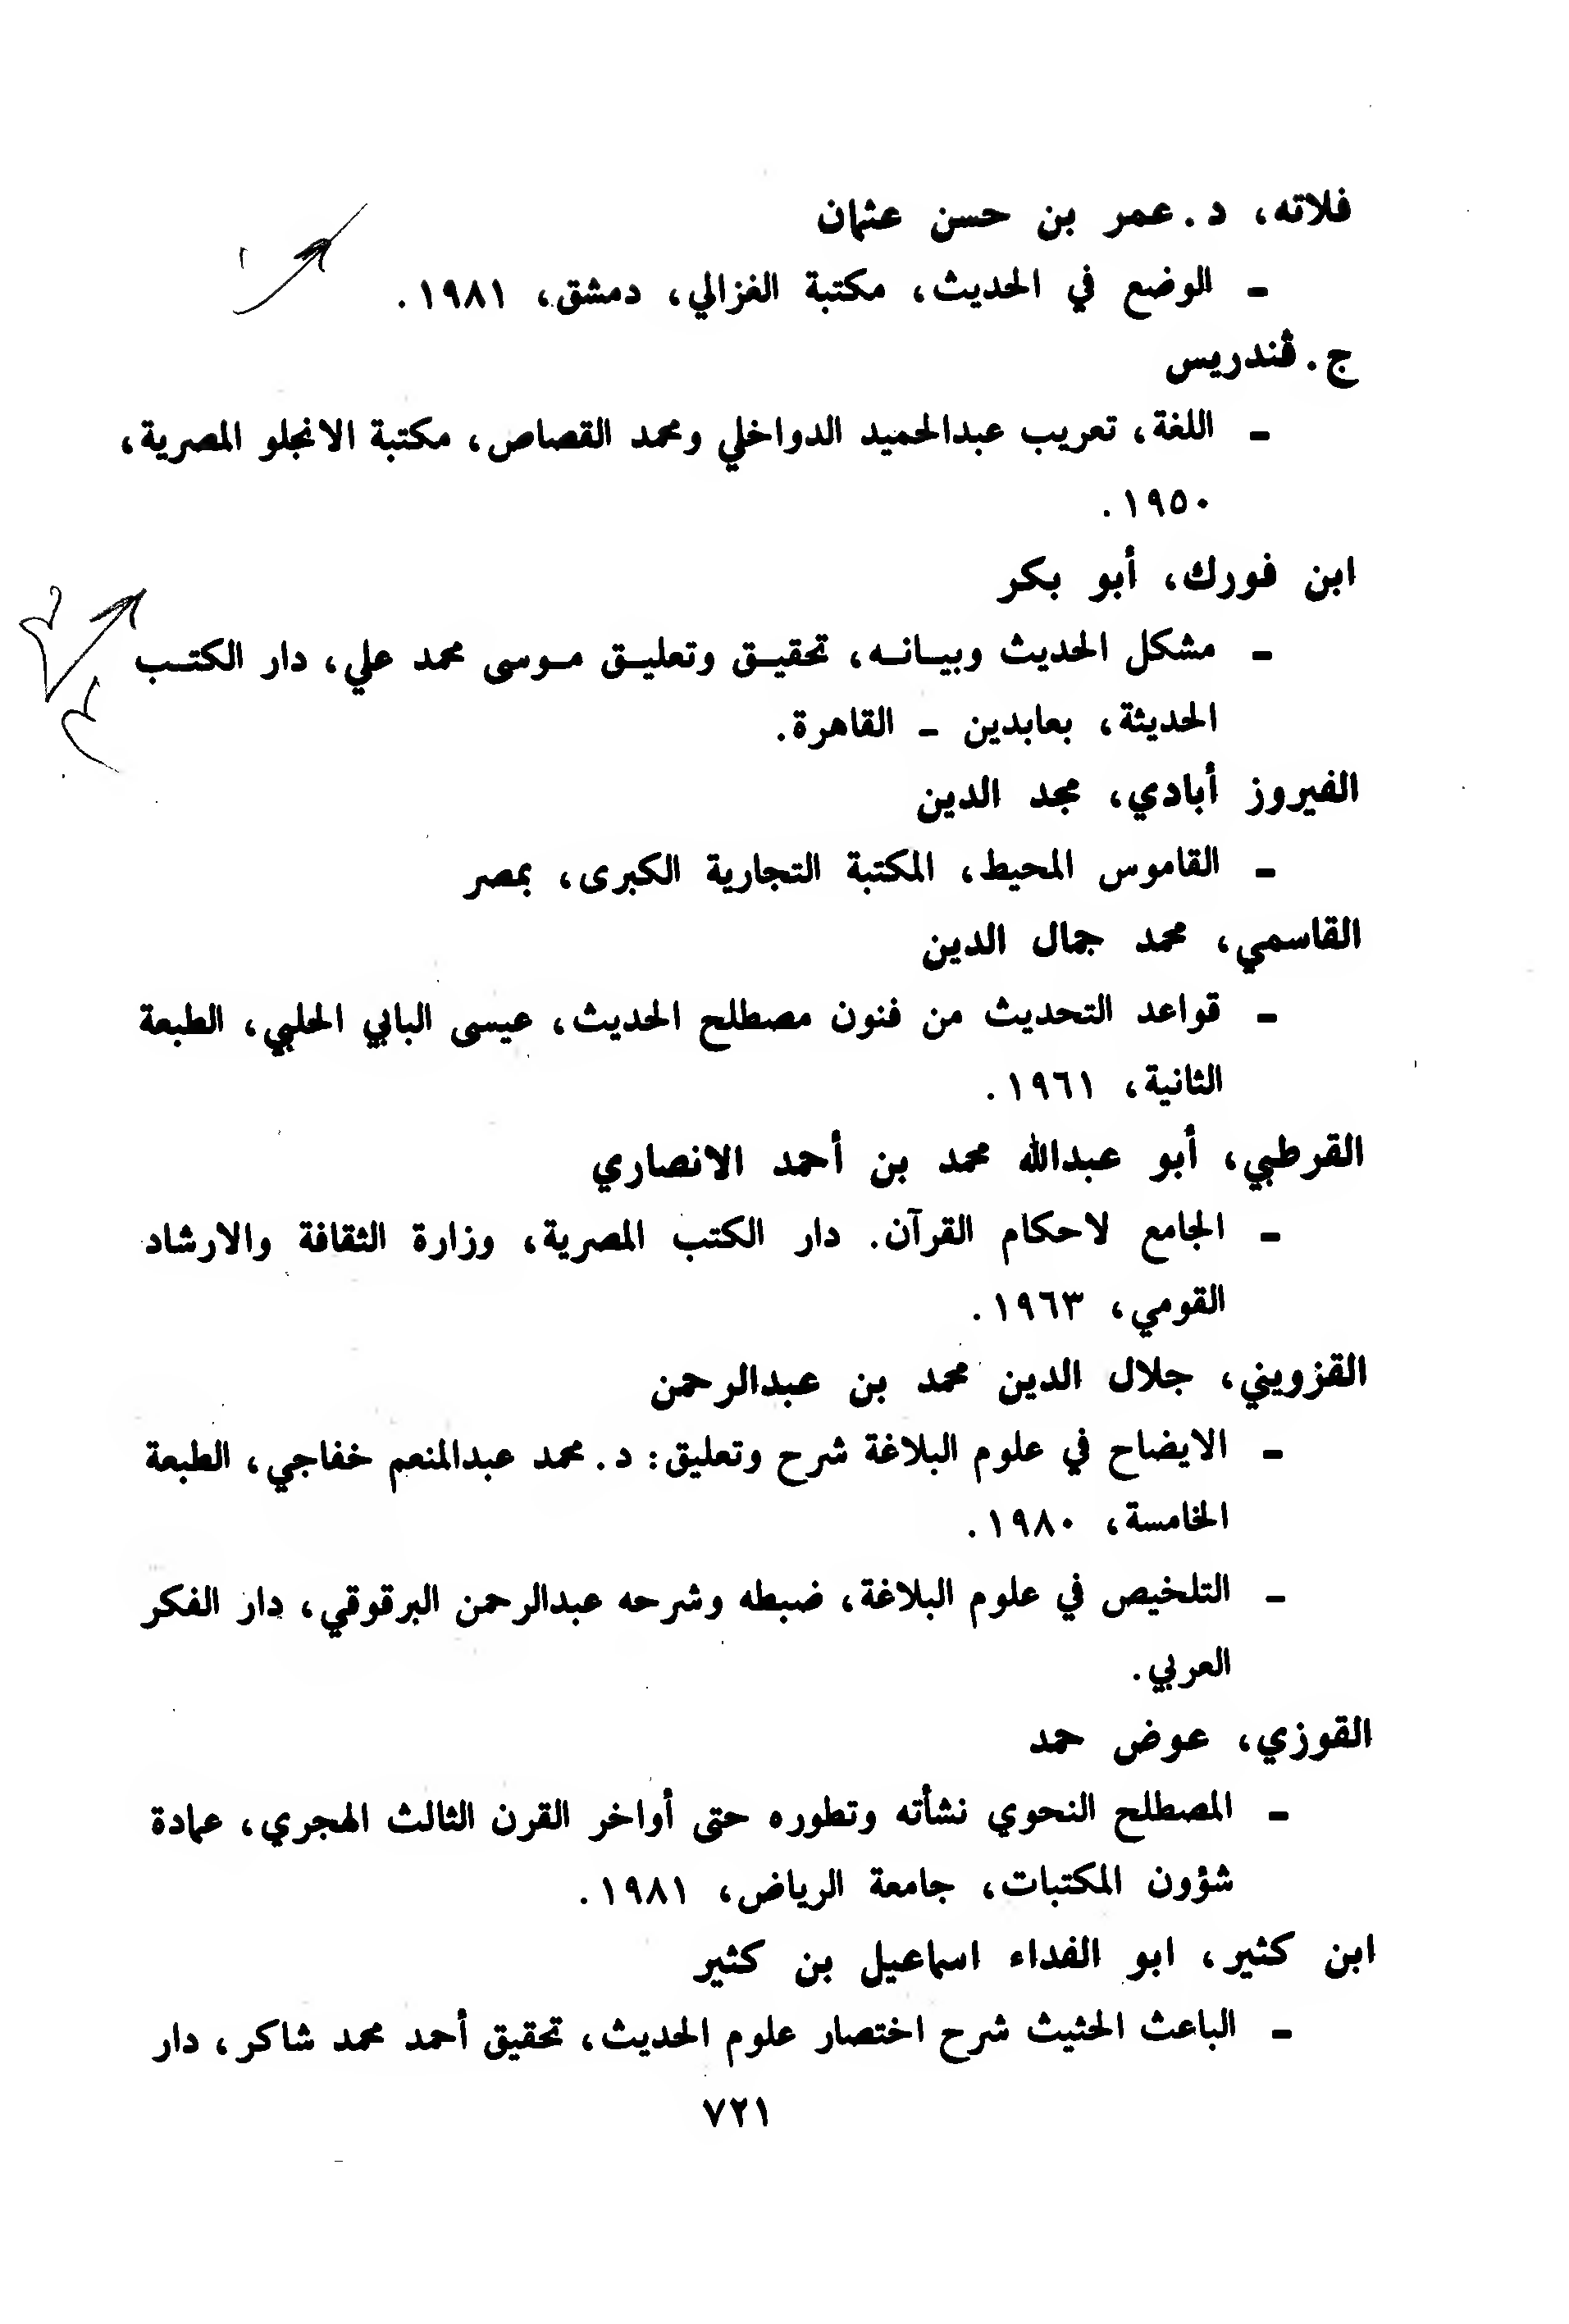 فلاته، د. عمر بن حسن عثمان
- الوضع في الحديث، مكتبة الغزالي، دمشق، ١٩٨١.
ج. ڤندريس
- اللغة، تعريب عبدالحميد الدواخلي ومحمد القصاص، مكتبة الانجلو المصرية،
١٩٥٠.
ابن فورك، أبو بكر
- مشكل الحديث وبيـانـه، تحقيـق وتعليـق مـوسى محمد علي، دار الكتـب
الحديثة، بعابدين - القاهرة.
الفيروز أبادي، مجد الدين
- القاموس المحيط، المكتبة التجارية الكبرى، بمصر
القاسمي، محمد جمال الدين
- قواعد التحديث من فنون مصطلح الحديث، عيسى البابي الحلبي، الطبعة
الثانية، ١٩٦١.
القرطبي، أبو عبدالله محمد بن أحمد الانصاري
- الجامع لاحكام القرآن. دار الكتب المصرية، وزارة الثقافة والارشاد
القومي، ١٩٦٣.
القزويني، جلال الدين محمد بن عبدالرحمن
- الايضاح في علوم البلاغة شرح وتعليق: د. محمد عبدالمنعم خفاجي، الطبعة
الخامسة، ١٩٨٠.
- التلخيص في علوم البلاغة، ضبطه وشرحه عبدالرحمن البرقوقي، دار الفكر
العربي.
القوزي، عوض حمد
- المصطلح النحوي نشأته وتطوره حتى أواخر القرن الثالث الهجري، عمادة
شؤون المكتبات، جامعة الرياض، ١٩٨١.
ابن كثير، ابو الفداء اسماعيل بن كثير
- الباعث الحثيث شرح اختصار علوم الحديث، تحقيق أحمد محمد شاكر، دار
٧٢١